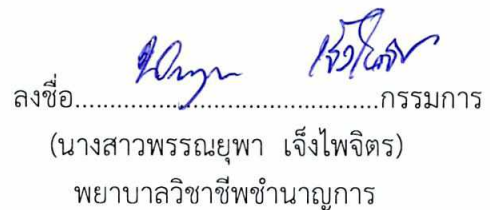 ลงชื่อ............................................กรรมการ
(นางสาวพรรณยุพา เจ็งไพจิตร)
พยาบาลวิชาชีพชำนาญการ